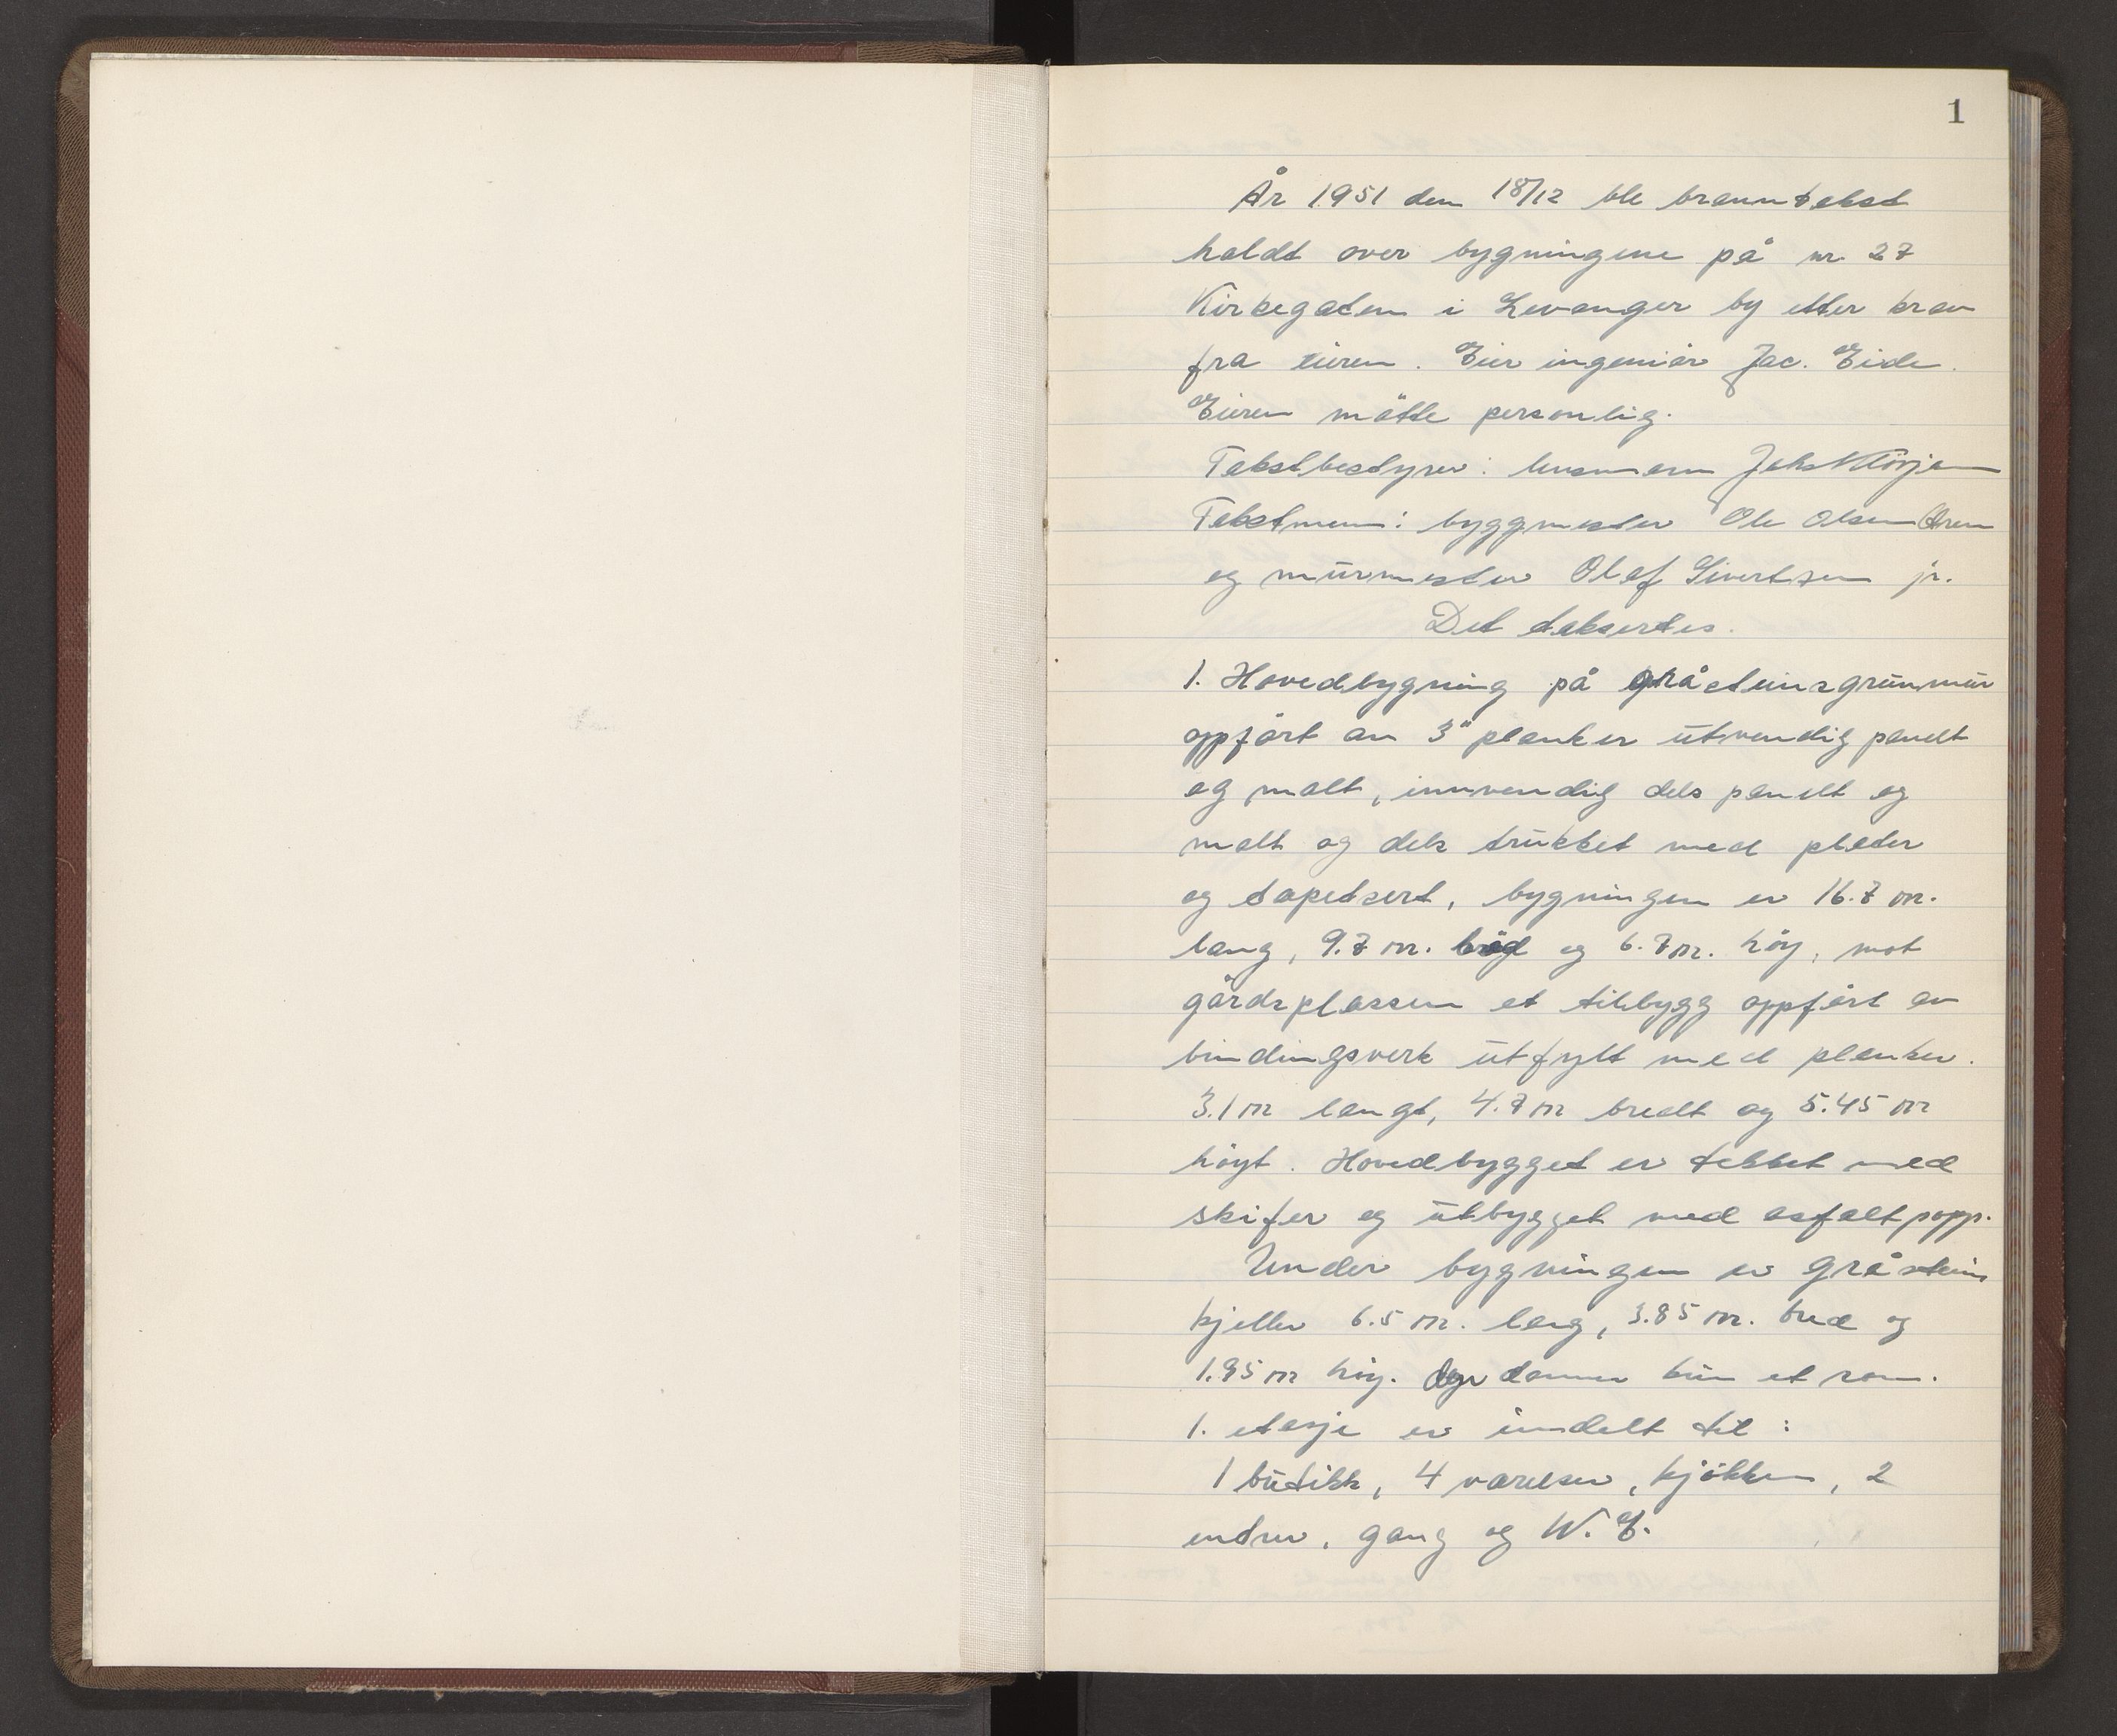 1
År 1951 den 18/12 ble branntakst
holdt over bygningene på nr. 27
Kirkegaten i Levanger by etter krav
fra eieren. Eier ingeniør Jac. Eide.
Eieren møtte personlig.
Takstbestyrer: lensmann Joh.
Takstmenn: byggmester Ole Olsen
og murmester Olaf Sivertsen jr.
Det taksertes.
1. Hovedbygning på gråsteinsgrunnmur
oppført av 3" planker utvendig panelt
og malt, innvendig dels panelt og
malt og dels trukket med plater
og tapetsert, bygningen er 16.7 m.
lang, 9.7 m. bred og 6.7 m. høy, mot
gårdsplassen et tilbygg oppført av
bindingsverk utfylt med planker.
3.1 m langt, 4.7 m bredt og 5.45 m
høyt. Hovedbygget er tekket med
skifer og utbygget med asfaltpapp.
Under bygningen er gråsteins
kjeller 6.5 m. lang, 3.85 m. bred og
1.95 m høy. den danner kun et rom.
1. etasje er inndelt til:
1 butikk, 4 værelser, kjøkken, 2
entreer, gang og W.C.